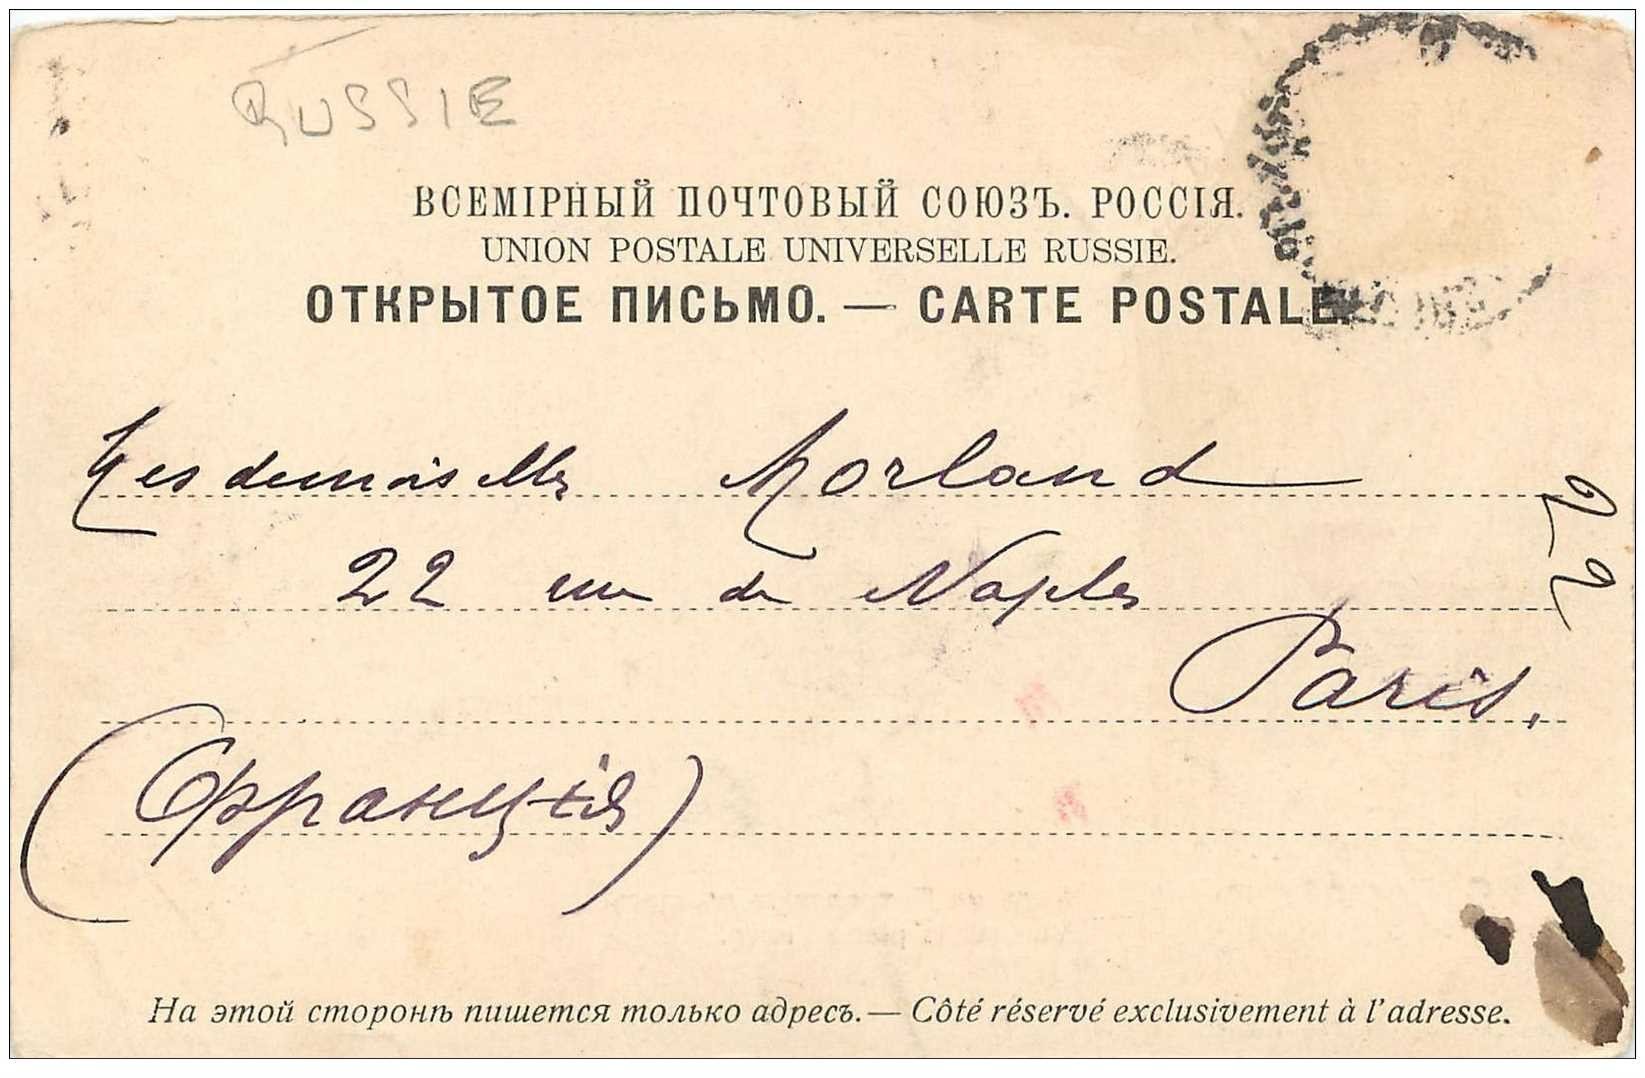 RUSSIE
ВСЕМІРНЫЙ ПОЧТОВЫЙ СОЮЗЪ. РОССІЯ.
UNION POSTALE UNIVERSELLE RUSSIE.
ОТКРЫТОЕ ПИСЬМО. — CARTE POSTALE.
Mesdemoiselles Morland
22 rue de Naples
Paris.
22
(Франція)
На этой сторонѣ пишется только адресъ. — Côté réservé exclusivement à l'adresse.